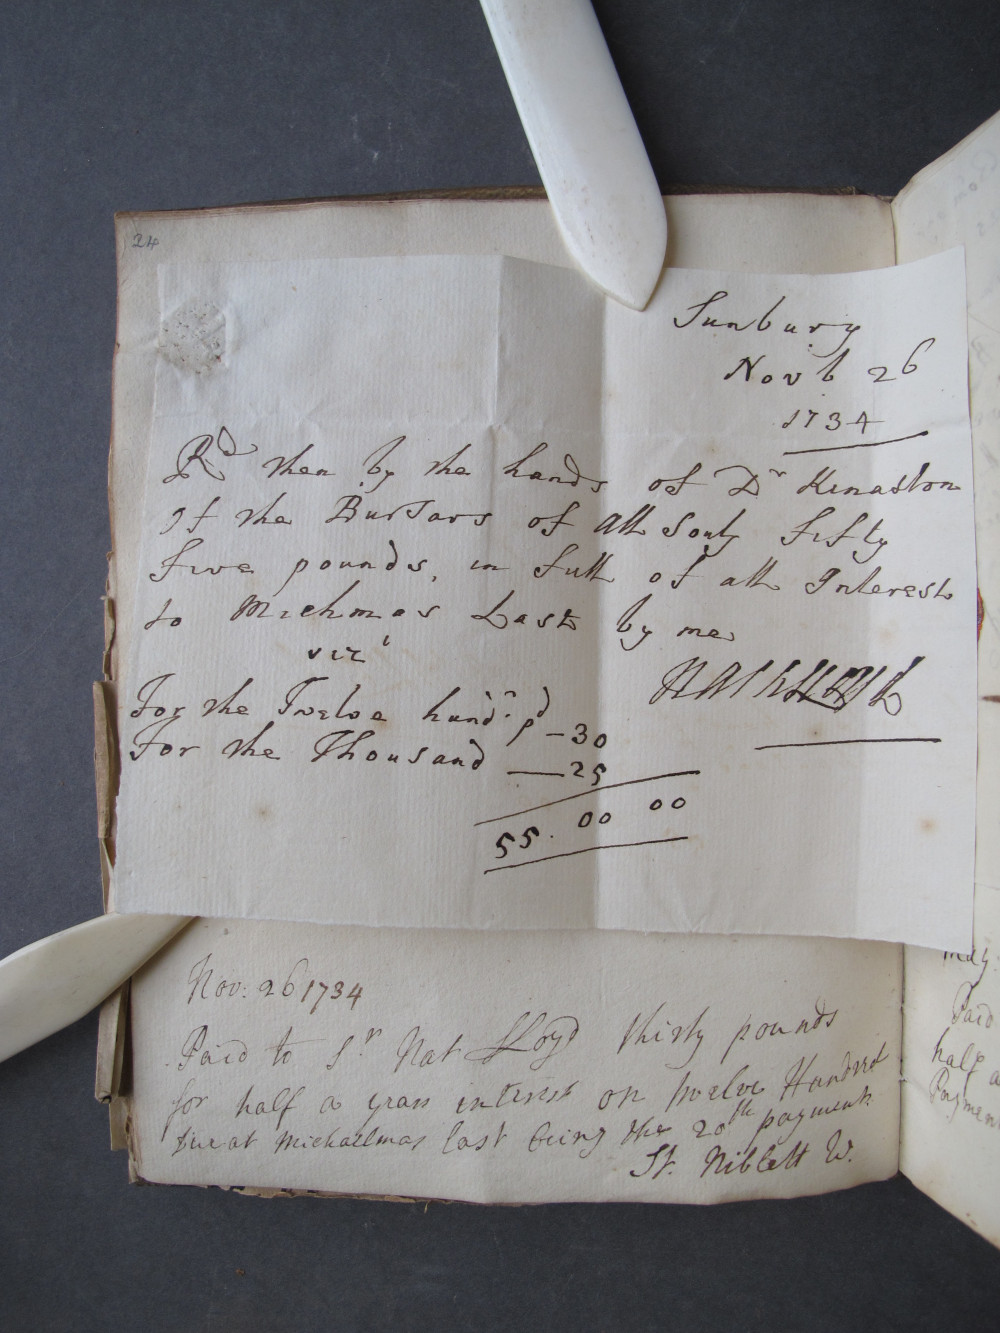 24
Sunbury
Novb 26
1734
Rd then by the hands of Dr Kinaston
of the Bursars of All Souls fifty
five pounds, in full of all Interest
to Michmas Last by me
vizt
NATH LLOYD
For the Twelve hundd. pd - 30
For the Thousand — 25
55. 00 00
Nov: 26 1734
Paid to Sr Nat Lloyd thirty pounds
for half a years interest on twelve Hundred
due at Michaelmas last being the 20th payment
St. Niblett W.
may
Paid
half a
Paymen